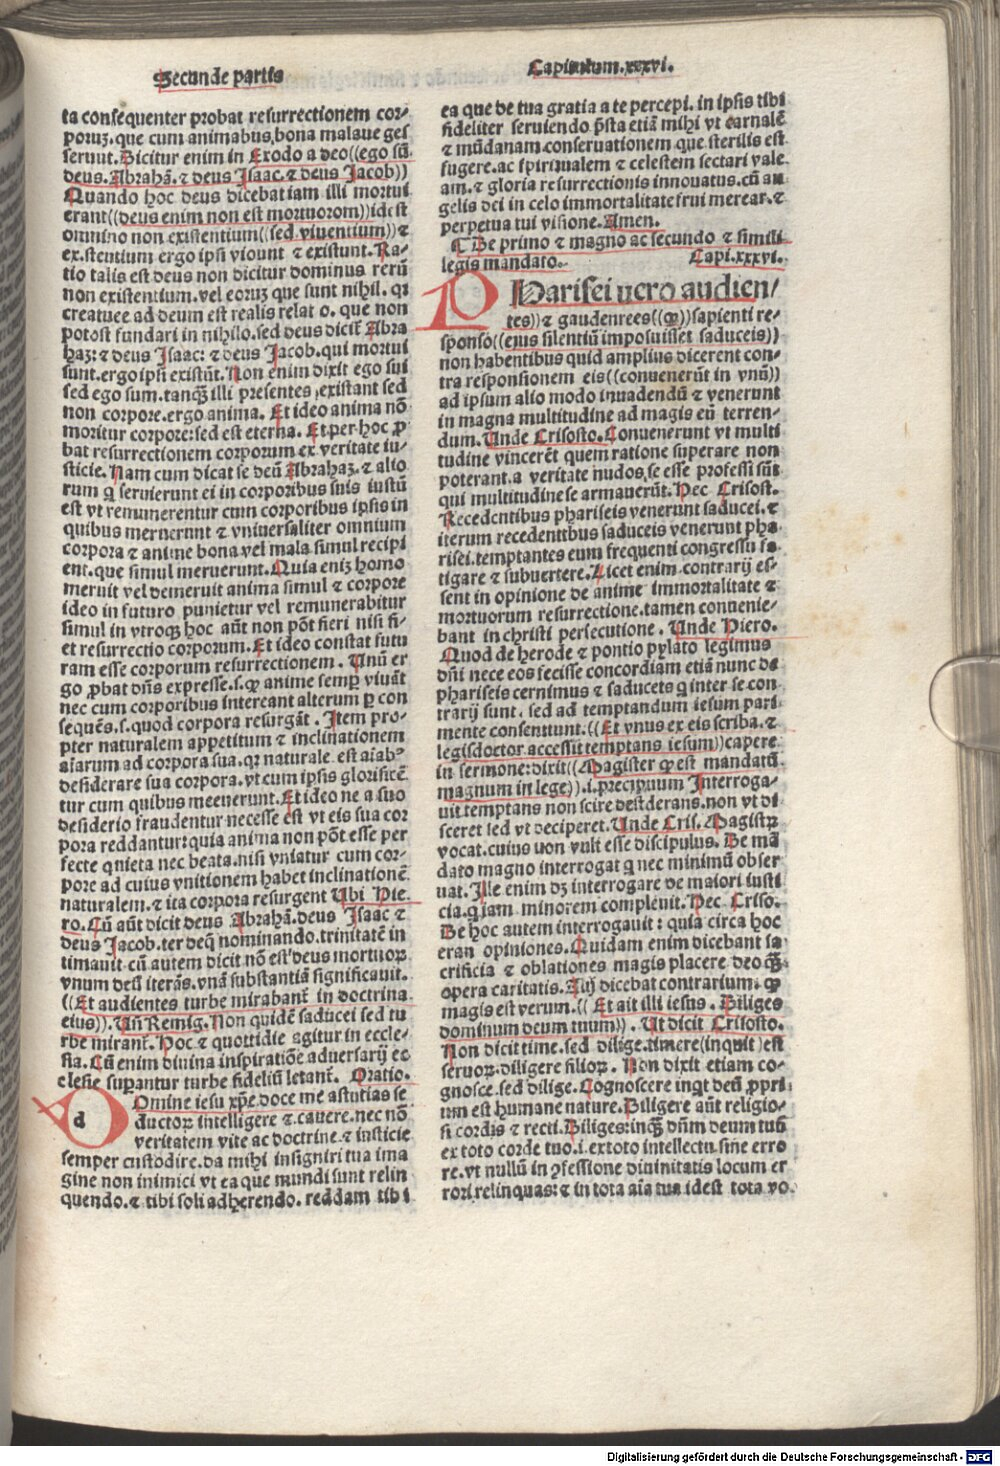 Secunde partis
Capitulum.xxxvi.
ta consequenter probat resurrectionem cor⸗
poruꝫ.que cum animabus bona malaue ges
serunt.Dicitur enim in Exodo a deo((ego sū
deus.Abrahā.⁊ deus Isaac.⁊ deus Jacob))
Quando hoc deus dicebat iam illi mortui
erant((deus enim non est mortuorom))idest
omnino non existentium((sed viuentium))⁊
ex.stentium ergo ipsi viount ⁊ existunt.Ra⸗
tio talis est deus non dicitur dominus rerū
non existentium.vel eoruꝫ que sunt nihil. qꝛ
creatuee ad deum est realis relat o. que non
potost fundari in nihilo.sed deus dicit̄ Abra
haꝫ:⁊ deus Isaac: ⁊ deus Jacob.qui mortui
sunt.ergo ipsi existūt.Non enim dixit ego fui
sed ego sum.tanqꝫ illi presentes ,existant sed
non corpore.ergo anima. Et ideo anima nō
moritur corpore:sed est eterna. Et per hoc ꝓ
bat resurrectionem corporum ex veritate iu⸗
sticie. Nam cum dicat se deū Abrahaꝫ.⁊ alio
rum q̄ seruierunt ei in corporibus suis iustū
est vt remunerentur cum corporibus ipsis in
quibus mernernnt ⁊ vniuersaliter omnium
corpora ⁊ anime bona vel mala simul recipi
ent.que simul meruerunt.Quia eniꝫ homo
meruit vel demeruit anima simul ⁊ corpore
ideo in futuro punietur vel remunerabitur
simul in vtroqꝫ hoc aūt non pōt fieri nisi fi⸗
et resurrectio corporum.Et ideo constat futu
ram esse corporum resurrectionem . Unū er
go ꝓbat dn̄s expresse.s.qꝙ anime semꝑ viuāt
nec cum corporibus intereant alterum ꝑ con
sequēs.s.quod corpora resurgāt . Item pro⸗
pter naturalem appetitum ⁊ inclinationem
aīarum ad corpora sua.qꝛ naturale est aīabꝰ
desiderare sua corpora.vt cum ipsis glorificē
tur cum quibus meenerunt.Et ideo ne a suo
desiderio fraudentur necesse est vt eis sua cor
pora reddantur:quia anima non pōt esse per
fecte qnieta nec beata.nisi vniatur cum cor⸗
pore ad cuius vnitionem habet inclinationē
naturalem.⁊ ita corpora resurgent Ubi Pie⸗
ro.Cū aūt dicit deus Abrahā.deus Isaac ⁊
deus Jacob.ter deꝫ nominando.trinitatē in
timauit cū autem dicit nō est deus mortuoꝝ
vnum deū iterās.vnā substantiā significauit.
((Et audientes turbe mirabant̄ in doctrina
eius)).Uñ Remig.Non quidē saducei sed tu
rbe mirant̄.Hoc ⁊ quottidie agitur in eccle⸗
sia.Cū enim diuina inspiratiōe aduersarij ec
clesie suꝑantur turbe fideliū letant̄. Oratio.
dOmine iesu xp̄e.doce me astutias se
ductoꝝ intelligere ⁊ cauere.nec nō
veritatem vite ac doctrine.⁊ insticie
semper custodire.da mihi insigniri tua ima
gine non inimici vt ea que mundi sunt relin
quendo.⁊ tibi soli adherendo. reddam tibi
ea que de tua gratia a te percepi.in ipsis tibi
fideliter seruiendo p̄sta etiā mihi vt carnalē
⁊ mūdanam conseruationem que sterilis est
fugere.ac spiritualem ⁊ celestem sectari vale
am.⁊ gloria resurrectionis innouatus.cū an
gelis dei in celo immortalitate frui merear.⁊
perpetua tui visione.Amen.
¶ De primo ⁊ magno ac secundo ⁊ simili
legis mandato. Capi.xxxvi.
PHarisei vero audien⸗
tes))⁊ gaudenrees((qꝙ))sapienti re⸗
sponso((eius silentiū imposuisset saduceis))
non habentibus quid amplius dicerent con⸗
tra responsionem eis((conuenerūt in vnū))
ad ipsum alio modo inuadendū ⁊ venerunt
in magna multitudine ad magis eū terren⸗
dum.Unde Crisosto.Conuenerunt vt multi
tudine vincerēt quem ratione superare non
poterant.a veritate nudos se esse professi sūt
qui multitudine se armauerūt.Hec Crisost.
Recedentibus phariseis venerunt saducei.⁊
iterum recedentibus saduceis venerunt pha
risei.temptantes eum frequenti congressu fa⸗
tigare ⁊ subuertere.Licet enim contrarij es⸗
sent in opinione de anime immortalitate ⁊
mortuorum resurrectione.tamen conuenie⸗
bant in christi persecutione . Unde Piero.
Quod de herode ⁊ pontio pylato legimus
dn̄i nece eos fecisse concordiam etiā nunc de
phariseis cernimus ⁊ saducets q̄ inter se con
trarij sunt. sed ad temptandum iesum pari
mente consentiunt.((Et vnus ex eis scriba.⁊
legisdoctor accessit temptans iesum))capere
in sermone:dixit((Magister qꝙ est mandatū
magnum in lege)).i.precipuum Interroga⸗
uit temptans non scire desiderans.non vt di
sceret sed vt deciperet.Unde Cris.Magistꝝ
vocat.cuius uon vult esse discipulus. De mā
dato magno interrogat q̄ nec minimū obser
uat.Ille enim dꝫ interrogare de maiori iusti
cia.q̄ iam minorem compleuit.Hec Crisso.
De hoc autem interrogauit : quia circa hoc
eran opiniones.Quidam enim dicebant sa
crificia ⁊ oblationes magis placere deo qꝫ̄
opera caritatis.Alij dicebat contrarium: qꝙ
magis est verum.(( Et ait illi iesus . Diliges
dominum deum tuum)) . Ut dicit Crisosto.
Non dicit time.sed dilige.timere(inquit)est
seruoꝝ.diligere filioꝝ. Non dixit etiam co⸗
gnosce.sed dilige.Cognoscere inq̄t deū ꝓpri⸗
um est humane nature.Diligere aūt religio⸗
si cordis ⁊ recti.Diliges:inqꝫ dn̄m deum tuū
ex toto corde tuo.i.ex toto intellectu.sine erro
re.vt nullū in ꝯfessione diuinitatis locum er
rori relinquas:⁊ in tota aīa tua idest tota vo⸗
Digitalisierung gefördert durch die Deutsche Forschungsgemeinschaft - DFG